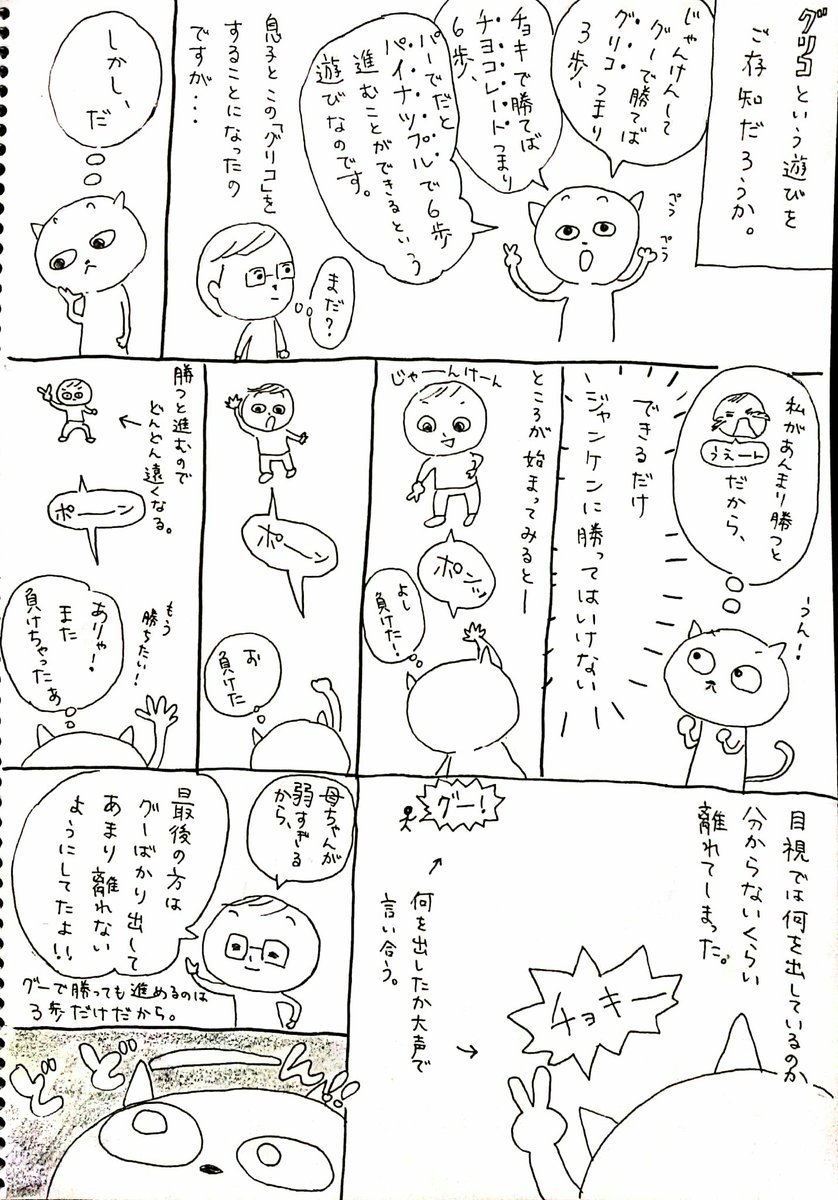 グリコという遊びを
ご存知だろうか。
じゃんけんして
グーで勝てば
グリコつまり
3歩、
チョキで勝てば
チヨコレートつまり
6歩、
パーでだと
パイナツプルで6歩
進むことができるという
遊びなのです。
ペラ
ペラ
息子とこの「グリコ」を
することになったの
ですが・・・
まだ？
しかし、
だ
私があんまり勝つと
うえーん
だから、
うん！
できるだけ
ジャンケンに勝ってはいけない
ところが始まってみるとー
じゃーんけーん
ポンッ
よし
負けた！
ポーン
お
負けた
勝つと進むので
どんどん遠くなる。
ポーーン
もう
勝ちたい！
ありゃ！
また
負けちゃったぁ
目視では何を出しているのか
分からないくらい
離れてしまった。
グー！
何を出したか大声で
言い合う。
チョキー
母ちゃんが
弱すぎる
から、
最後の方は
グーばかり出して
あまり離れない
ようにしてたよ!!
グーで勝っても進めるのは
3歩だけだから。
どどーーん!!